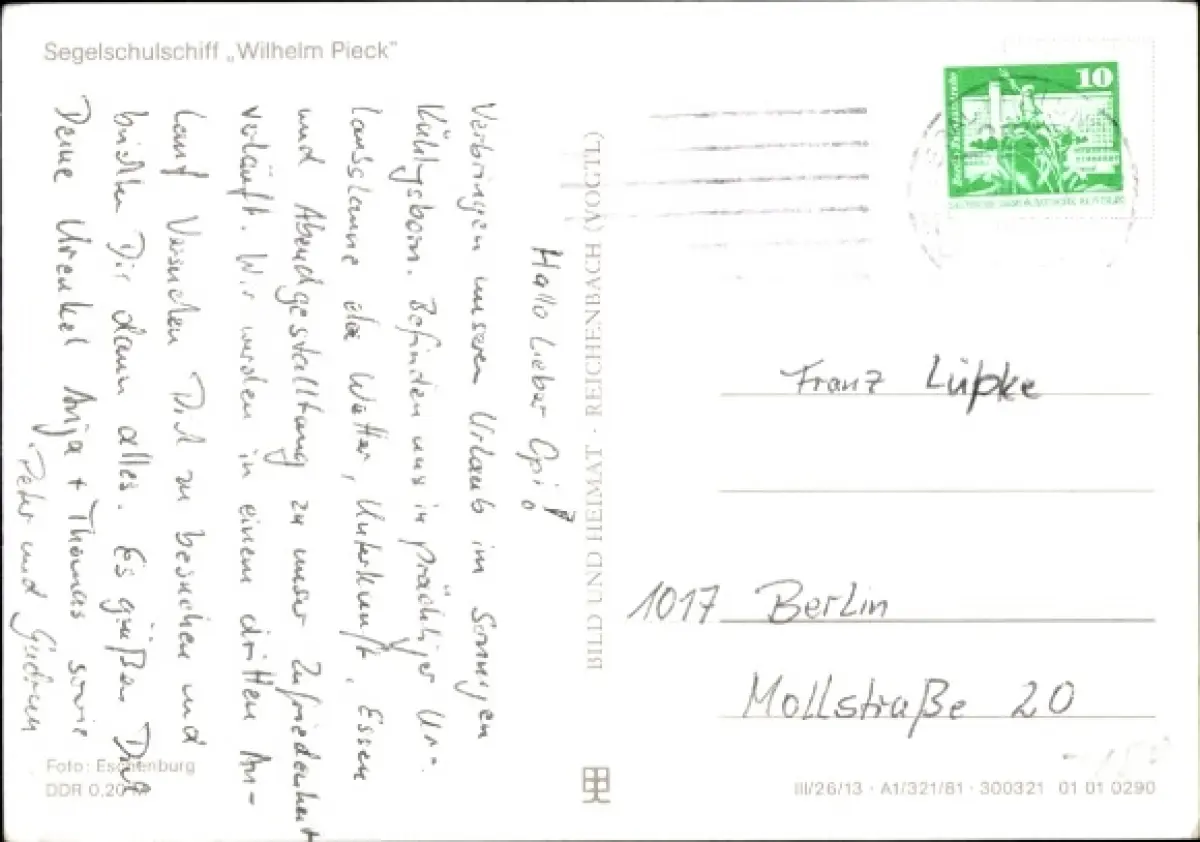 Segelschulschiff „Wilhelm Pieck"
Hallo Lieber Opi!
Verbringen unseren Urlaub im Sonnigen
Kühlungsborn. Befinden uns in prächtiger Ur-
laubslaune da Wetter, Unterkunft, Essen
und Abendgestalltung zu unser Zufriedenheit
verläuft. Wir wurden in einem dritten An-
lauf Versuchen Dich zu besuchen und
berichten Dir dann alles. Es grüßen Dich
Deine Urenkel Anja + Thomas sowie
Peter und Gudrun
Foto: Eschenburg
DDR 0,20 M
BILD UND HEIMAT · REICHENBACH (VOGTL)
10
Franz Lüpke
1017 Berlin
Mollstraße 20
III/26/13 · A1/321/81 · 300321 01 01 0290